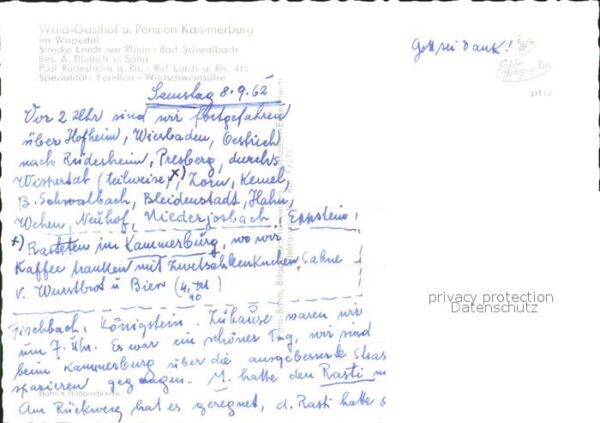 Wald-Gasthof u. Pension Kammerburg
im Wispertal
Strecke Lorch am Rhein - Bad Schwalbach
Bes. A. Dietrich u. Sohn
Post Rüdesheim a. Rh. - Ruf Lorch a. Rh. 415
Spezialität: Forellen - Wildschweinsülze
Gott sei Dank!
Samstag 8.9.62
Vor 2 Uhr sind wir fortgefahren
über Hofheim, Wiesbaden, Oestrich
nach Rüdesheim, Presberg, durchs
Wispertal (teilweise) x), Zorn, Kemel
B. Schwalbach, Bleidenstadt, Hahn,
Wehen, Neuhof, Niederjosbach, Eppstein,
x) Rasteten im Kammerburg, wo wir
Kaffee tranken mit Zwetschkenkuchen, Sahne
v. Wurstbrot u Bier
privacy protection
Datenschutz
Fischbach, Königstein. Zuhause waren wir
um 7 Uhr. Es war ein schöner Tag, wir sind
beim Kammerburg über die ausgebesserte Stras
spazieren gegangen. M. hatte den Rasti m
Am Rückweg hat es geregnet, d. Rasti hatte s